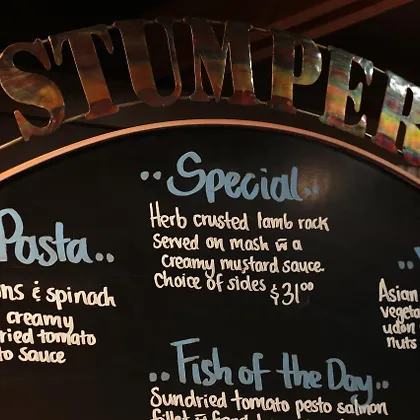 STUMPER
..Special..
Herb crusted lamb rack
Served on mash w a
creamy mustard sauce.
Choice of sides $31⁰⁰
Pasta..
ns & spinach
creamy
ried tomato
to sauce
Asian
vegeta
udon
nuts
..Fish of the Day..
Sundried tomato pesto salmon
fillet w